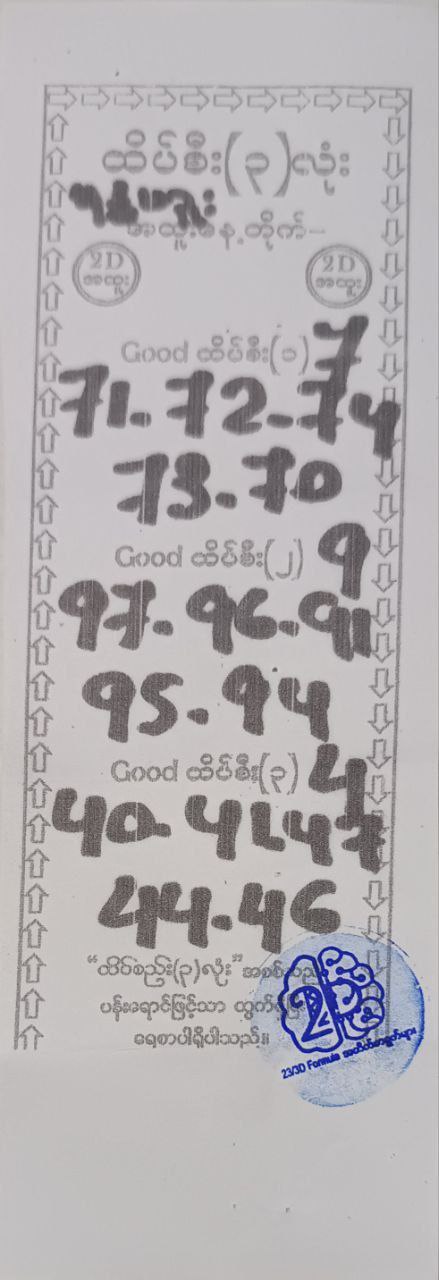 ထိပ်စီး(၃)လုံး
အထူးနေ့တိုက်-
2D
အထူး
2D
အထူး
Good ထိပ်စီး(၁) 7
71. 72-74
73-70
Good ထိပ်စီး(၂) 9
97-96-91
95-94
Good ထိပ်စီး(၃) 4
40-41-47
44-46
“ထိပ်စည်း(၃)လုံး”
ပန်းရောင်ဖြင့်သာ
ရေစာပါရှိပါသည်။
2D
23/3D Formula